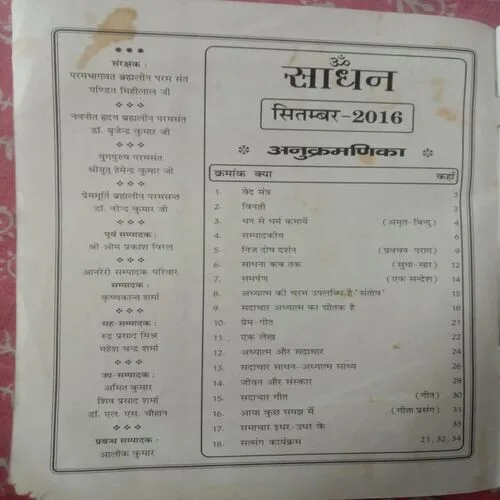 संरक्षक :
परमभागवत ब्रह्मलीन परम संत
पण्डित मिहीलाल जी
नवनीत हृदय ब्रह्मलीन परमसंत
डॉ. बृजेन्द्र कुमार जी
युगपुरुष परमसंत
श्रीयुत् हेमेन्द्र कुमार जी
प्रेममूर्ति ब्रह्मलीन परमसन्त
डॉ. नरेन्द्र कुमार जी
पूर्व सम्पादक :
श्री ओम प्रकाश विरल
आनरेरी सम्पादक परिवार
सम्पादक :
कृष्णकान्त शर्मा
सह-सम्पादक :
रुद्र प्रसाद मिश्र
महेश चन्द्र शर्मा
उप-सम्पादक :
अमित कुमार
शिव प्रसाद शर्मा
डॉ. एल. एस. चौहान
प्रबन्ध सम्पादक :
आलोक कुमार
ॐ
साधन
सितम्बर-2016
अनुक्रमणिका
क्रमांक क्या कहाँ
1. वेद मंत्र 3
2. विनती 3
3. धन से धर्म कमायें (अमृत-बिन्दु) 4
4. सम्पादकीय 6
5. निज दोष दर्शन (प्रवचन-पराग) 9
6. साधना कब तक (सुधा-सार) 12
7. समर्पण (एक सन्देश) 14
8. अध्यात्म की चरम उपलब्धि है 'संतोष' 15
9. सदाचार अध्यात्म का द्योतक है 18
10. प्रेम-गीत 21
11. एक लेख 22
12. अध्यात्म और सदाचार 24
13. सदाचार साधन-अध्यात्म साध्य 26
14. जीवन और संस्कार 28
15. सदाचार गीत (गीत) 30
16. आया कुछ समझ में (गीता प्रसंग) 31
17. समाचार इधर-उधर के 33
18. सत्संग कार्यक्रम 21, 32, 34